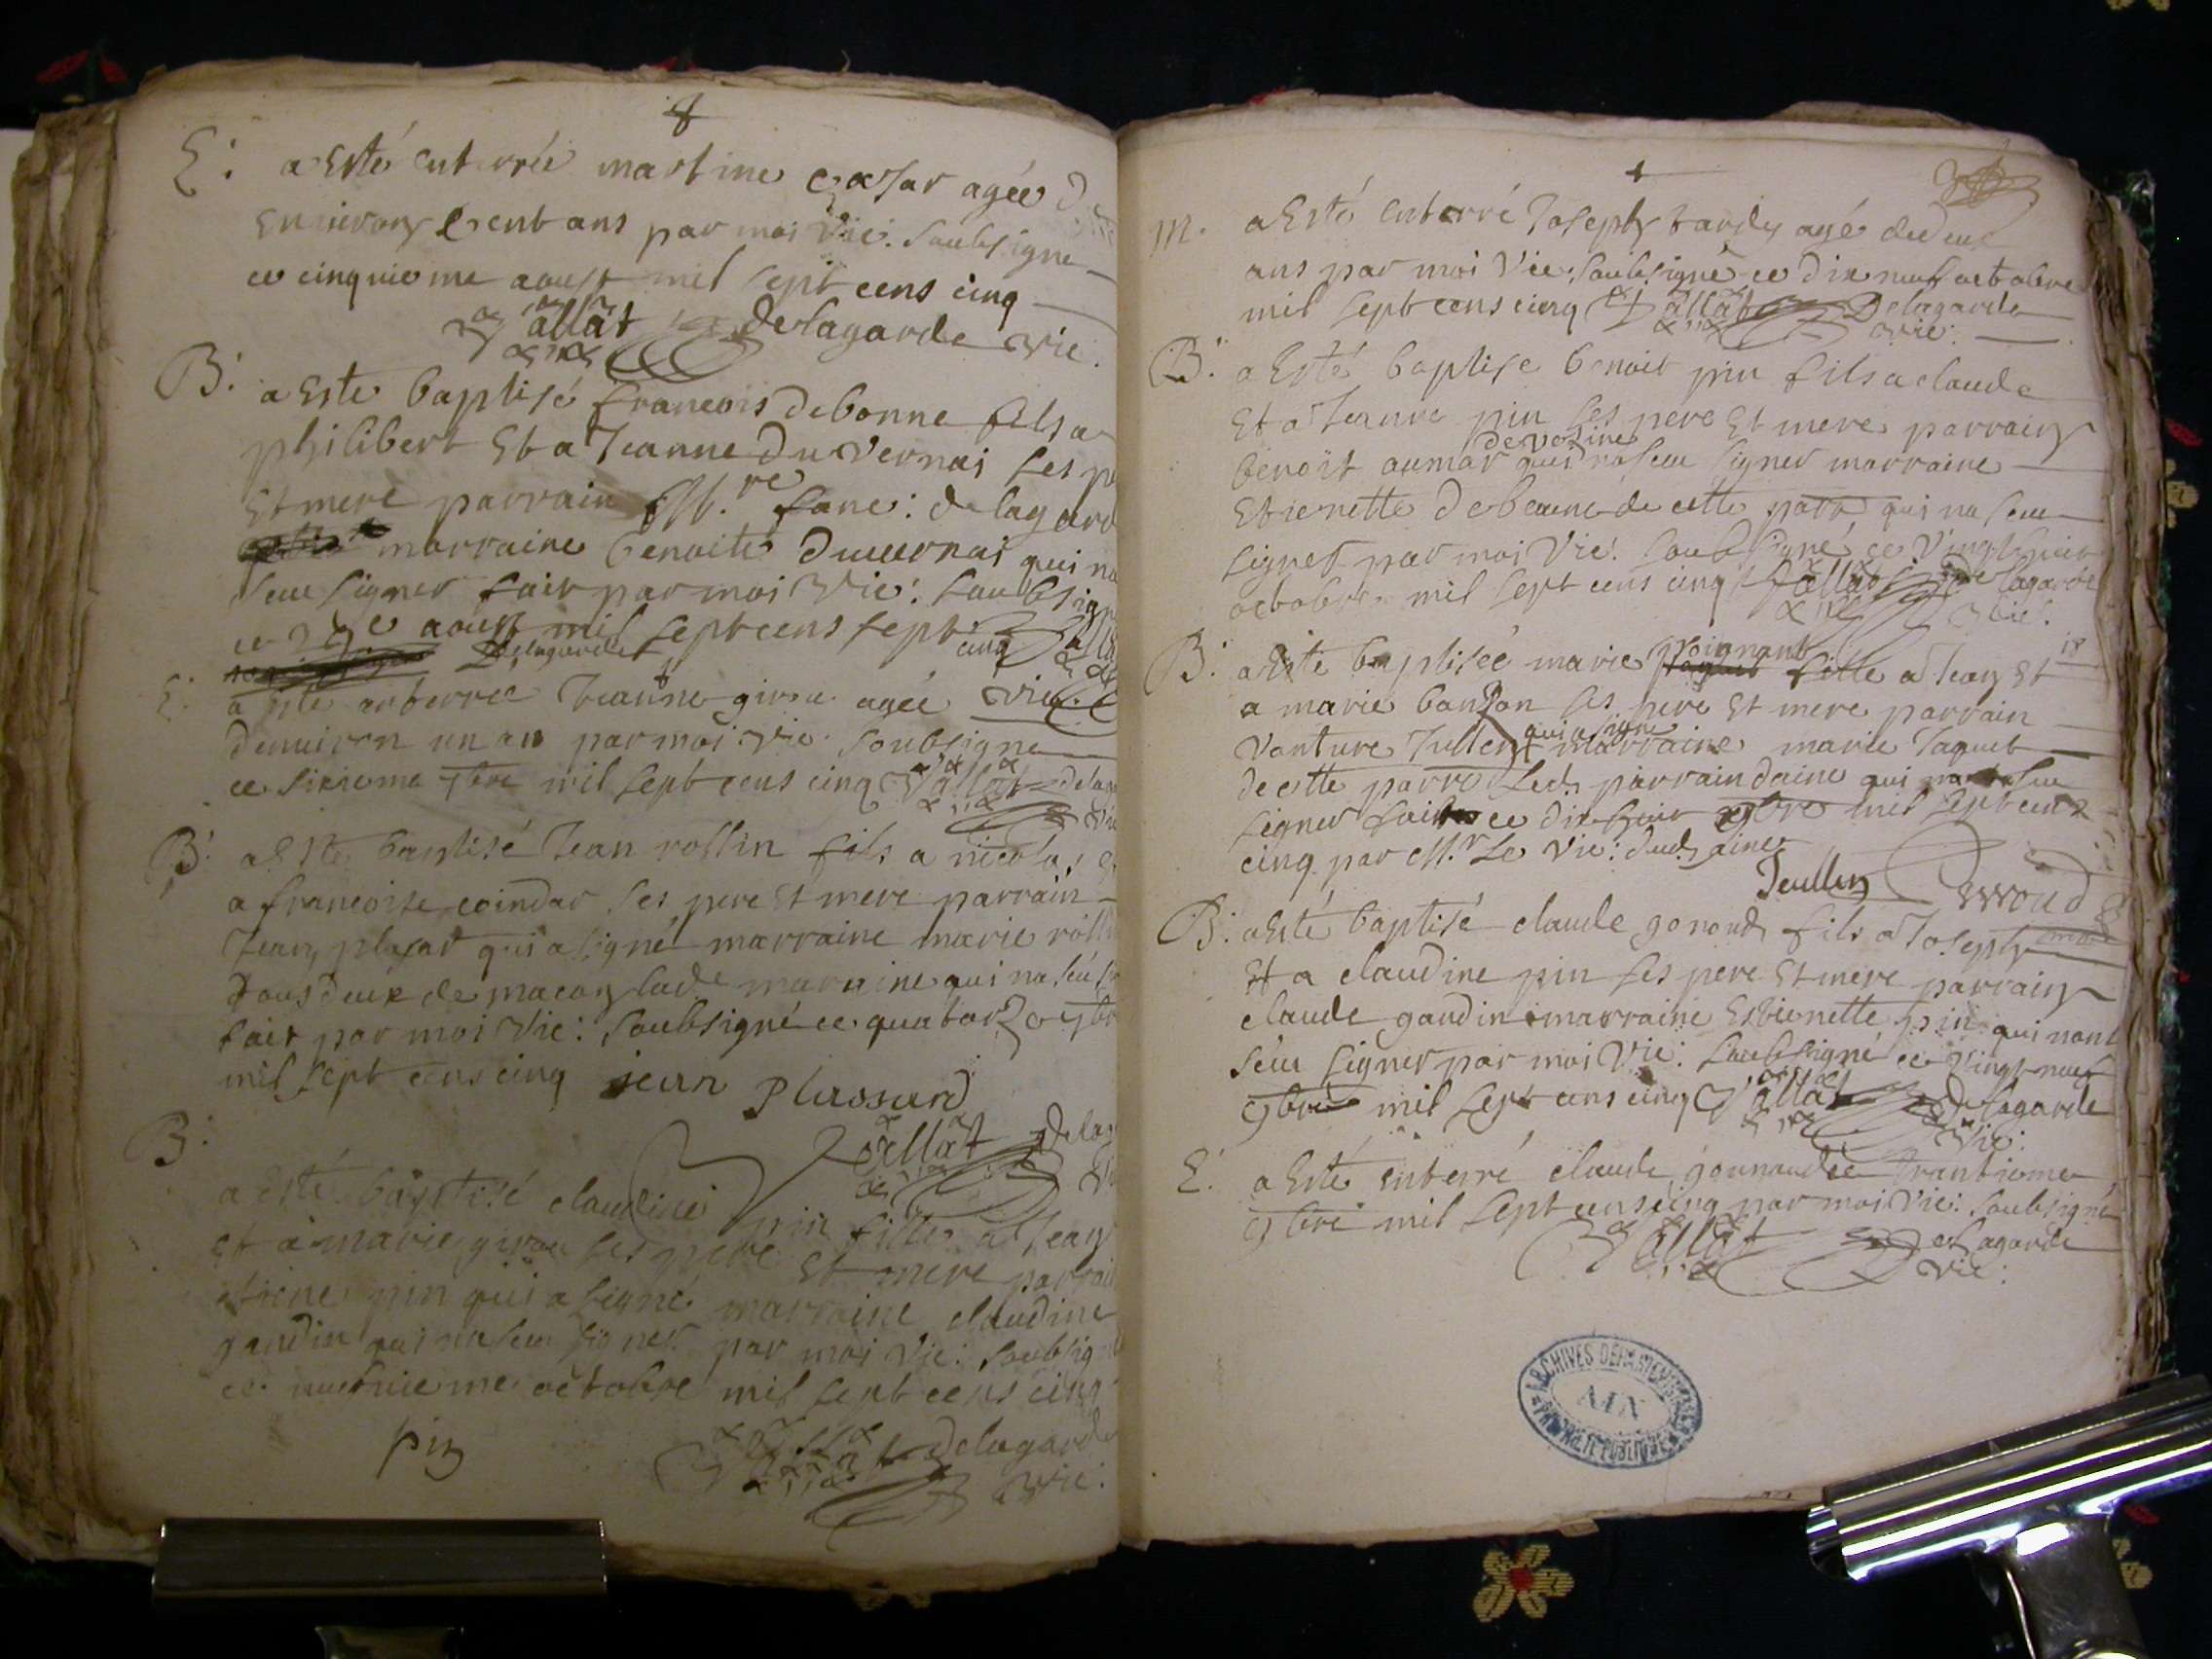 E. a Esté enterrée martine agée de
Environ Cent ans par moi Vic: soubsigné
ce cinquieme aoust mil sept cens cinq
Vallat Delagarde Vic:
B. a Esté baptisé francois debonne fils a
philibert Et a Jeanne Du Vernai ses pe
Et mere parrain delagard
marraine benoite Duvernai qui na
seu signer fait par moi Vic: soubsign
ce aoust mil sept cens sept cinq
Delagarde Vic:
E. a Esté enterree Jeanne girou agée
denviron un an par moi Vic. soubsigné
ce sixieme 7bre mil sept cens cinq Vallat delaga
B. a Esté baptisé Jean rollin fils a nicolas et
a francoise coindar ses pere Et mere parrain
Jean plasar qui a signé marraine marie rolli
tous deux de macon lade maraine qui na séu
fait par moi Vic: soubsigné ce quatorze 7br
mil sept cens cinq jean Plassard
Vallat Delag
B. a Esté baptisé claudine pin fille a Jean
Et a marie girou ses pere Et mere parrain
etiene pin qui a signé marraine claudine
gandin qui na seu signer par moi Vic: soubsig
ce neufvieme octobre mil sept cens cinq
pin
Vallat Delagarde
Vic:
m. a Esté enterré Joseph tardy agé de deux
ans par moi Vic: soubsigné ce dix neuf octobre
mil sept cens cinq Vallat Delagarde
Vic:
B. a Esté baptise benoit pin fils a claude
Et a Jeanne pin ses pere Et mere parrain
de vosine
benoit aumar qui na seu signer marraine
Etienette debeaune de cette parr qui na seu
signer par moi Vic: soubsigné ce Vingt huit
octobre mil sept cens cinq Vallat Delagarde
Vic:
B. a Esté baptisée marie poignant fille a Jean Et
a marie bonson ses pere Et mere parrain
qui a signé
Vanture Jullen marraine marie Jaquet
de cette parr Led parrain daine qui na seu
signer fait ce dix huit 9bre mil sept cens
cinq par Mr Le Vic: dud aine
Jeullen
B. a Esté baptisé claude gonond fils a Joseph
Et a claudine pin ses pere Et mere parrain
claude gandin marraine Estienette pin qui nont
séu signer par moi Vic: soubsigné ce Vingt neuf
9bre mil sept cens cinq Vallat Delagarde
Vic:
E. a Esté enterré claude gounand ce trantieme
9bre mil sept cens cinq par moi Vic: soubsigné
Vallat Delagarde
Vic:
ARCHIVES DÉPARTEMENTALES
AIN
PROPRIÉTÉ PUBLIQUE